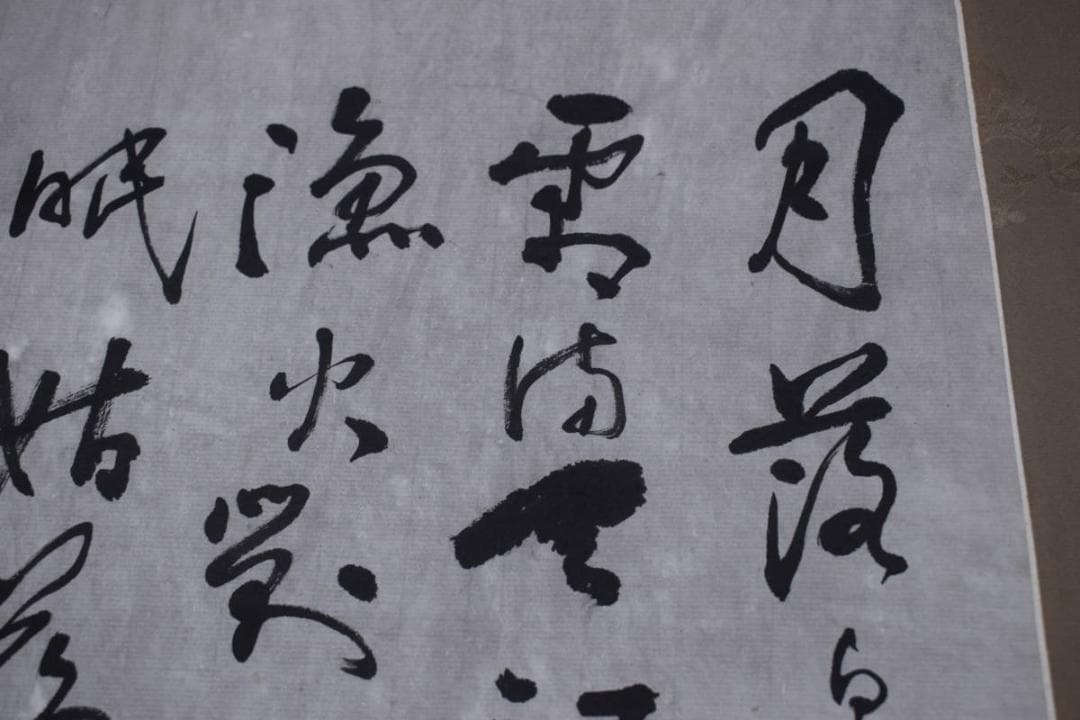 月落
霜满天江
渔火对
眠姑苏